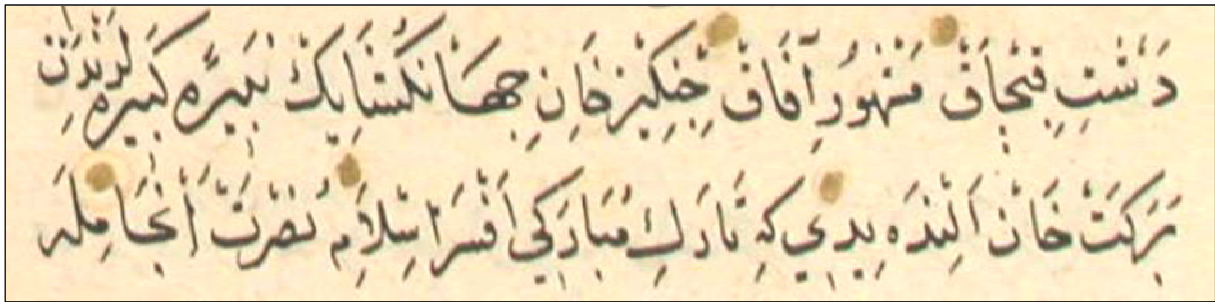 دَشْتِ قِبْچَاقْ مَشْهُورِ آفَاقْ جِنْكِيزْ خَانِ جِهَانْكُشَايِكْ نَبِيرَهٔ كَبِيرَه لَرِنْدَنْ
بَرَكَتْ خَانْ اَلِنْدَه يِدِي كِه تَارَكِ مُبَارَكِي اَفْسَرِ اِسْلَامِ نُصْرَتْ اَنْجَامِلَه